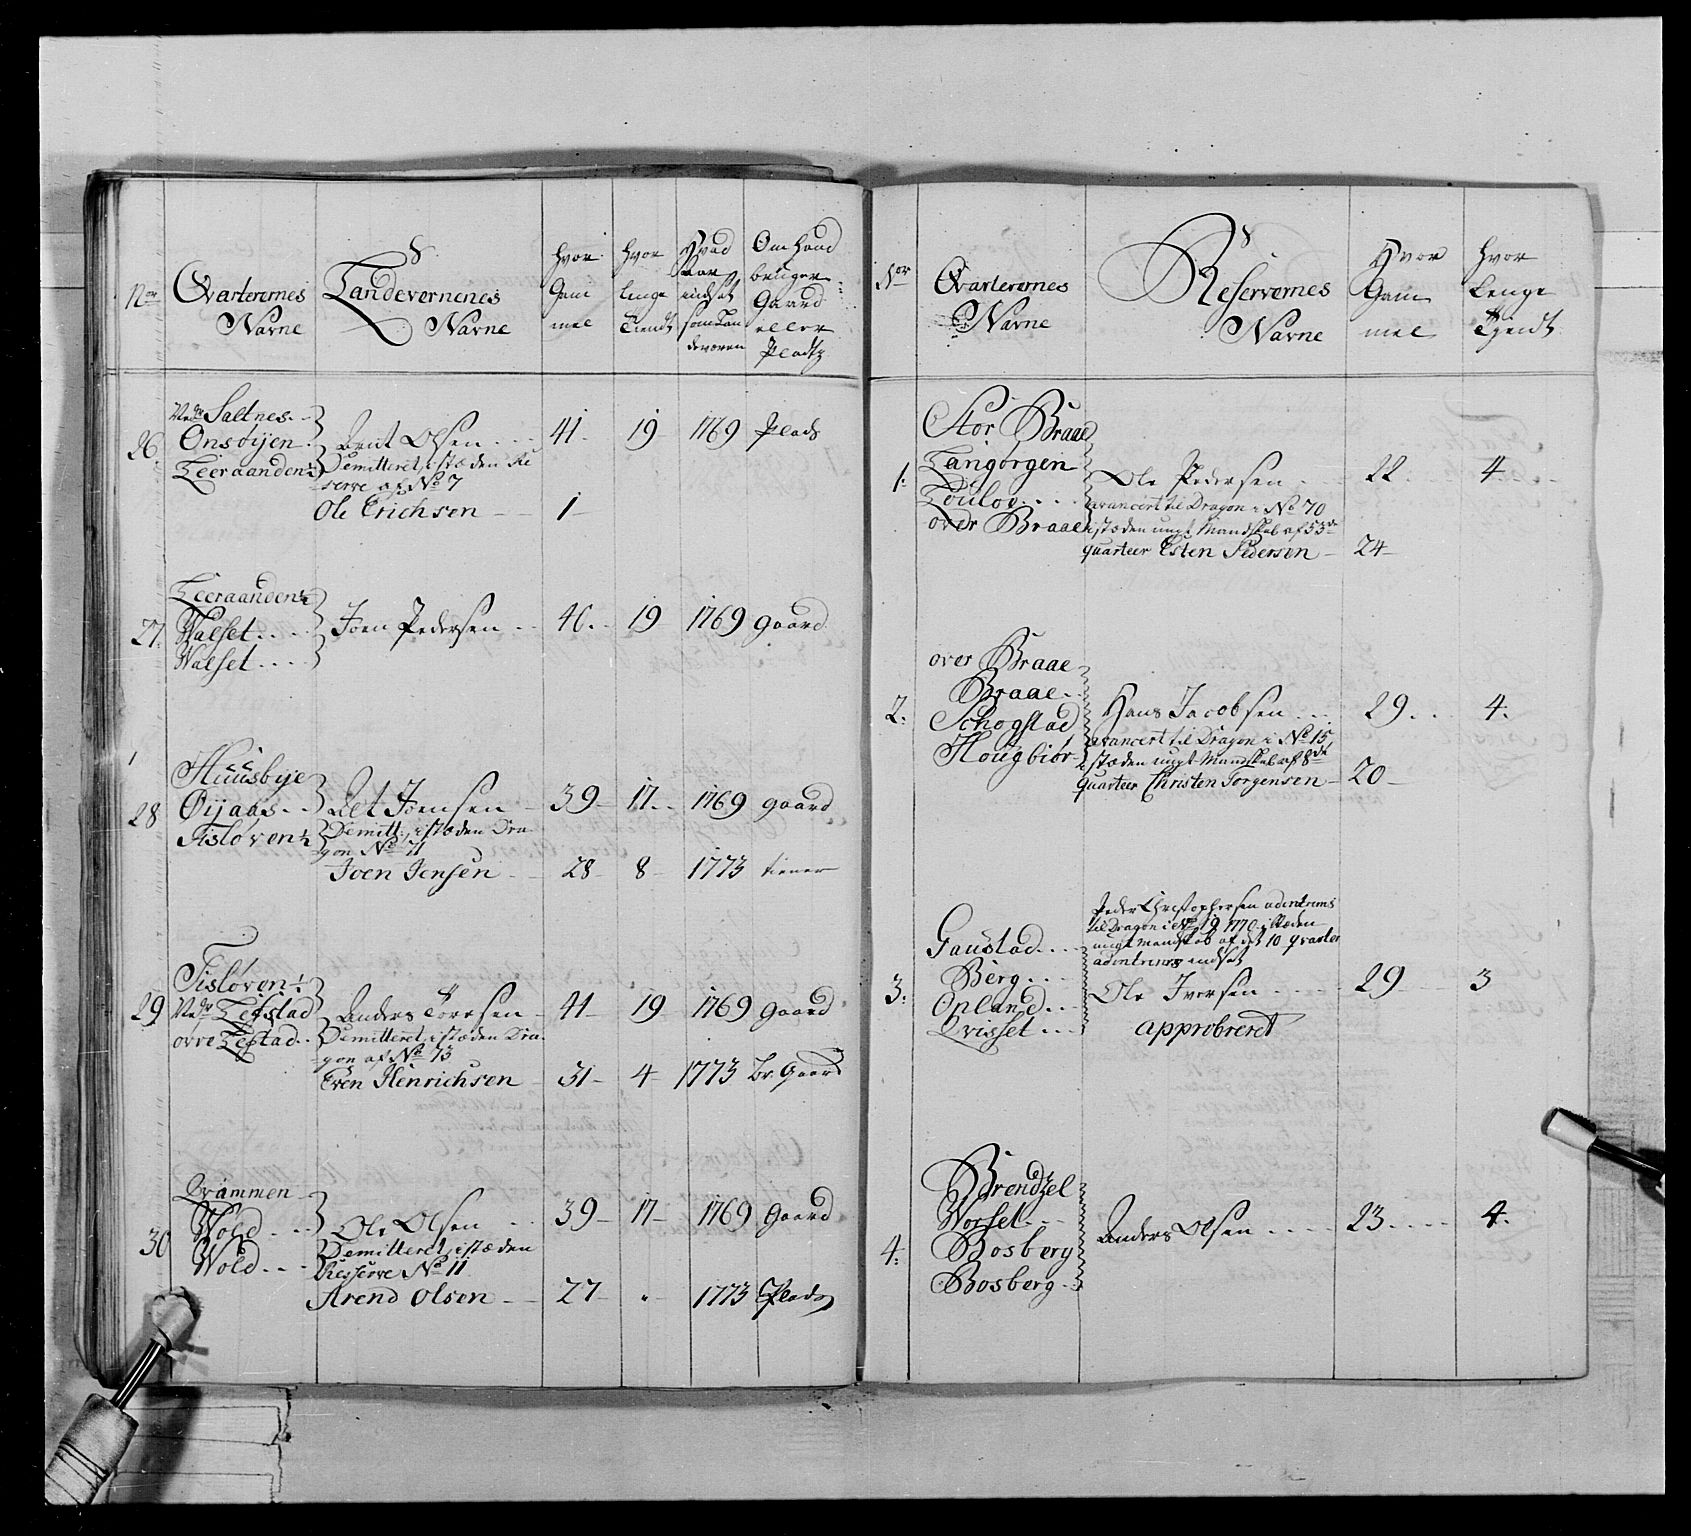 Nor
Qvarterernes
Navne
Landevernenes
Navne
Hvor
Gam
mel
Hvor
lenge
Tiendt
Hvad
Aar
indsat
som Lan
deværn
Om Hand
bruger
Gaard
eller
Pladtz
26
Nedr Saltnes
Onsøijen
Leeraanden ½
Arnt Olsen 41 19 1769 Plads
Demitteret, i stæden Re
serve af No 7
Ole Erichsen 1
27
Leeraanden ½
Walset
Walset
Joen Pedersen 40 19 1769 gaard
28
Huusbye
Øijaas
Fisløven ½
Joensen 39 17 1769 gaard
Demitt: i stæden Dra
gon No 71
Joen Jensen 28 8 1773 tiener
29
Fisløven ½
Nedr Lefstad
ovre Lefstad
Anders Toresen 41 19 1769 gaard
Demitteret, i stæden Dra
gon af No 73
Even Henrichsen 31 4 1773 br. Gaard
30
Qvammen
Wold
Wold
Ole Olsen 39 17 1769 Gaard
Demitteret, i stæden
Reserve No 11
Arend Olsen 27 " 1773 Plads
Nor
Qvarterernes
Navne
Reservernes
Navne
Hvor
Gam
mel
Hvor
Lenge
Tjendt
1.
Stor Braae
Langørgen
Loulov
over Braae
Ole Pedersen 22 4
avancert til Dragon i No 70
i stæden ungt Mandskab af 53de
quarteer Esten Pedersen 24
2.
over Braae
Braae
Schogstad
Hougbiør
Hans Jacobsen 29 4.
avancert til Dragon i No 15
i stæden ungt Mandskab af 8de
quarteer Christen Jorgensen 20
3.
Gaustad
Berg
Opland
Qvisset
Peder Christophersen adintrims
til Dragon i No 19 1770. i stæden
ungt mandskab af det 10 qvarter
adintrims indsat
Ole Iversen 29 3
approberet
4.
Brendzel
Worset
Bosberg
Bosberg
Anders Olsen 23 4.